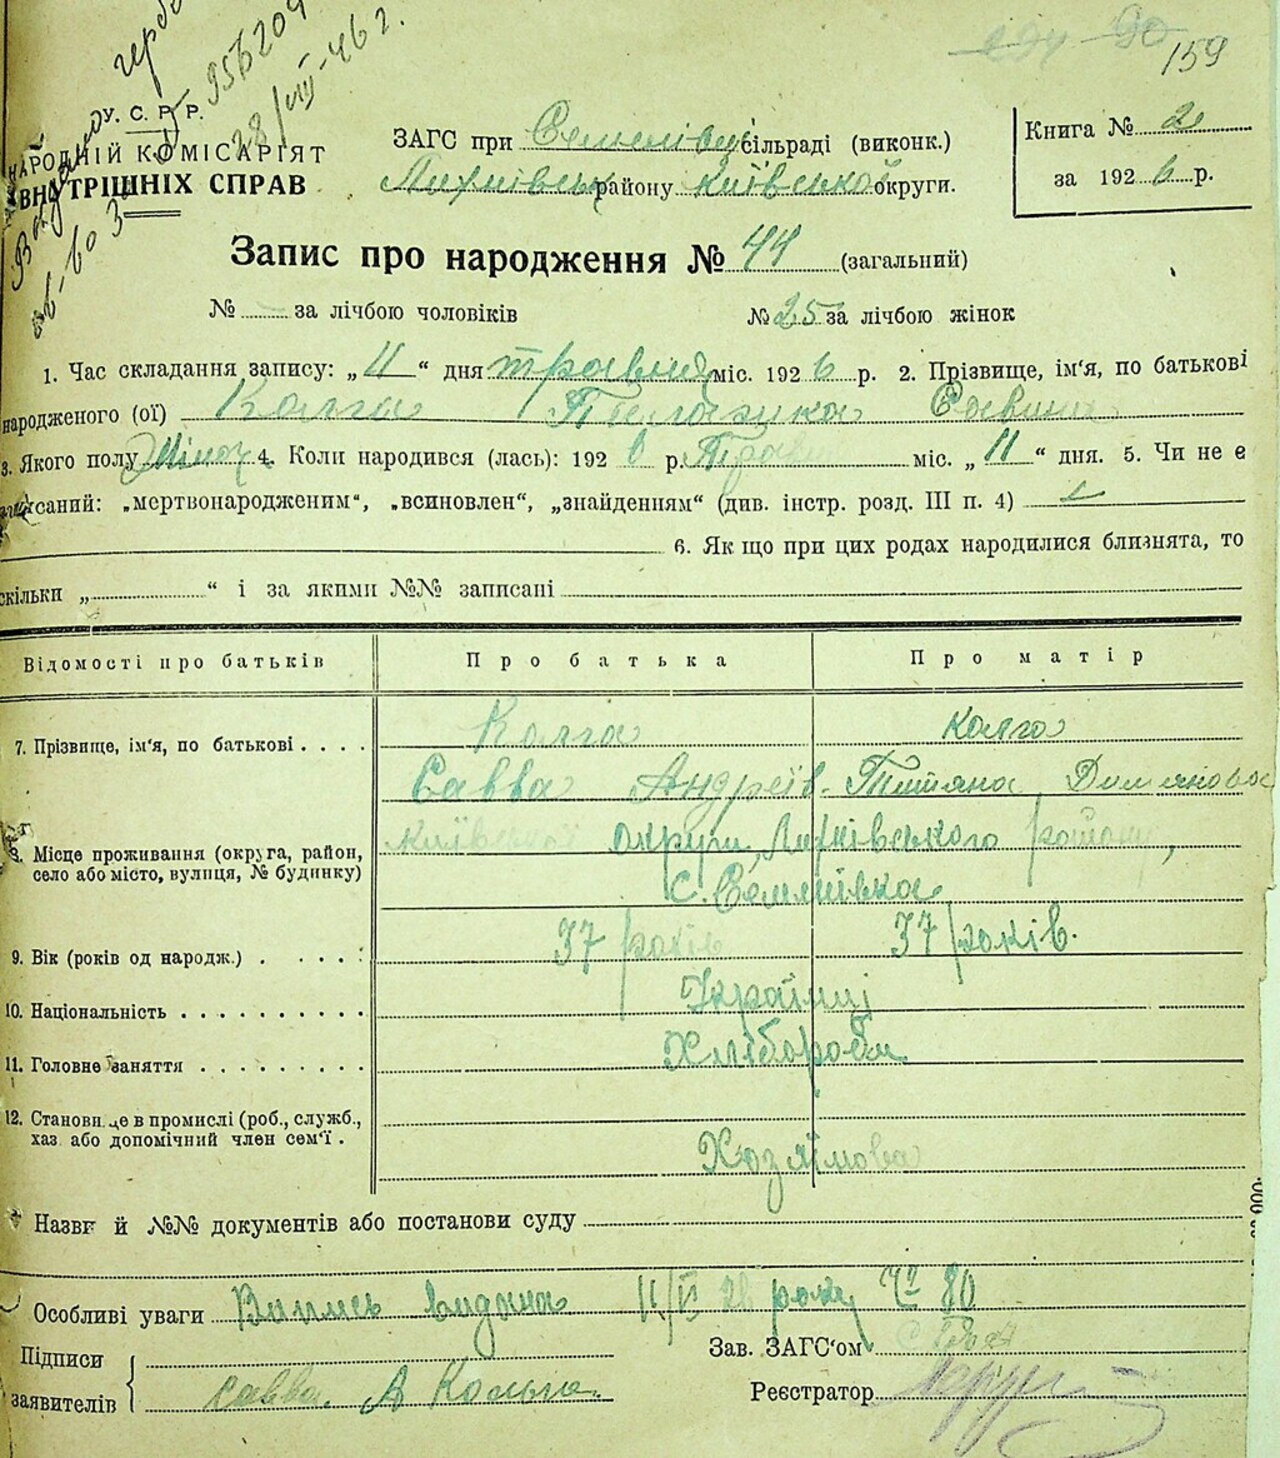 159
У. С. Р. Р.
НАРОДНІЙ КОМІСАРІЯТ
ВНУТРІШНІХ СПРАВ
956209
28/VIII-46 г.
ЗАГС при Семенівській сільраді (виконк.)
району Київської округи.
Книга № 2
за 1926 р.
Запис про народження № 44 (загальний)
№ за лічбою чоловіків
№ 25 за лічбою жінок
1. Час складання запису: „11“ дня травня міс. 1926 р. 2. Прізвище, ім'я, по батькові
народженого (ої) Калга Пелагія Савишна
3. Якого полу Жіноч 4. Коли народився (лась): 1926 р. Травня міс. „11“ дня. 5. Чи не є
записаний: „мертвонародженим“, „всиновлен“, „знайденням“ (див. інстр. розд. III п. 4)
6. Як що при цих родах народилися близнята, то
скільки „ “ і за якими №№ записані
Відомості про батьків
Про батька
Про матір
7. Прізвище, ім'я, по батькові . . . .
Калга
Калга
Савва Андреїв.
Титяна
8. Місце проживання (округа, район,
село або місто, вулиця, № будинку)
Київської округи, району,
с. Семенівка
9. Вік (років од народж.) . . . . .
37 років
37 років.
10. Національність . . . . . . . . . .
Українці
11. Головне заняття . . . . . . . . .
Хлібороби
12. Становище в промислі (роб., служб.,
хаз або допомічний член сем'ї .
Хозяїнова
Назви й №№ документів або постанови суду
Особливі уваги Випись видана 11/V 26 року Ч° 80
Підписи
заявителів
Савва. А Кольга.
Зав. ЗАГС'ом
Реєстратор